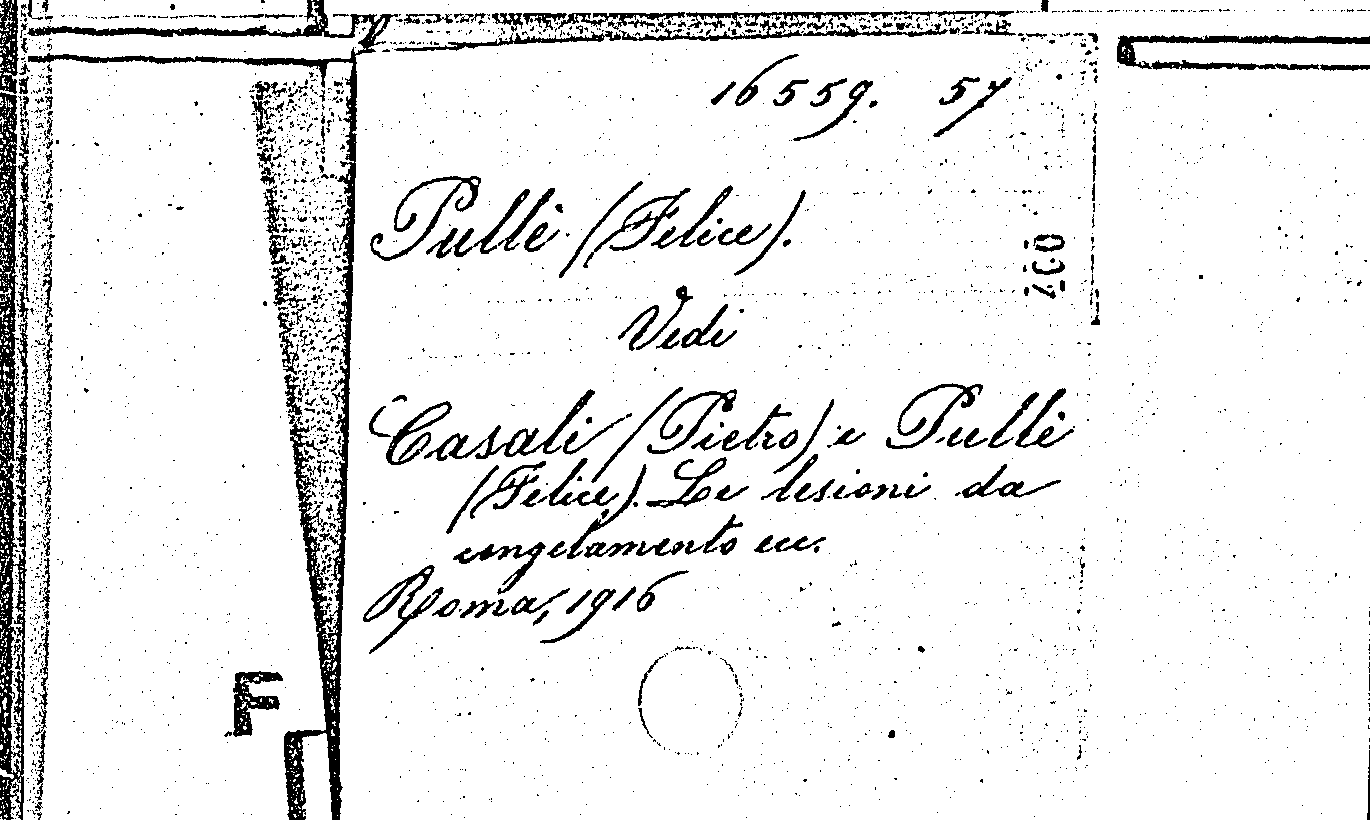 16559. 57
Pullè (Felice).
Vedi
Casali (Pietro) e Pullè
(Felice). Le lesioni da
congelamento ecc.
Roma, 1916
F